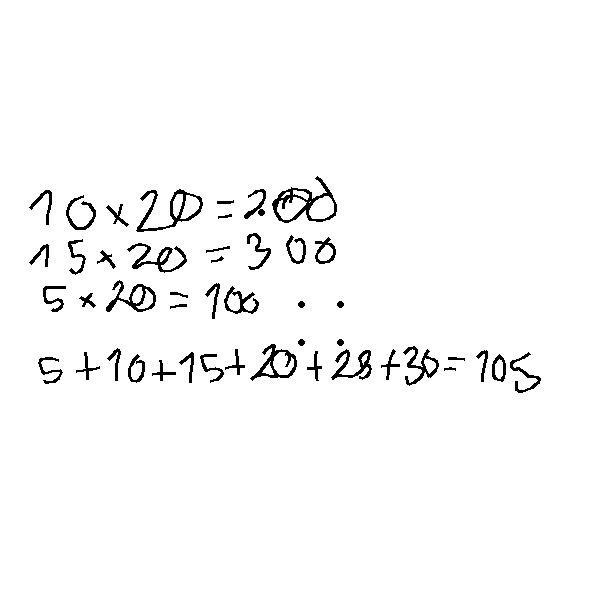 10×20=200
15×20=300
5×20=100
5+10+15+20+25+30=105